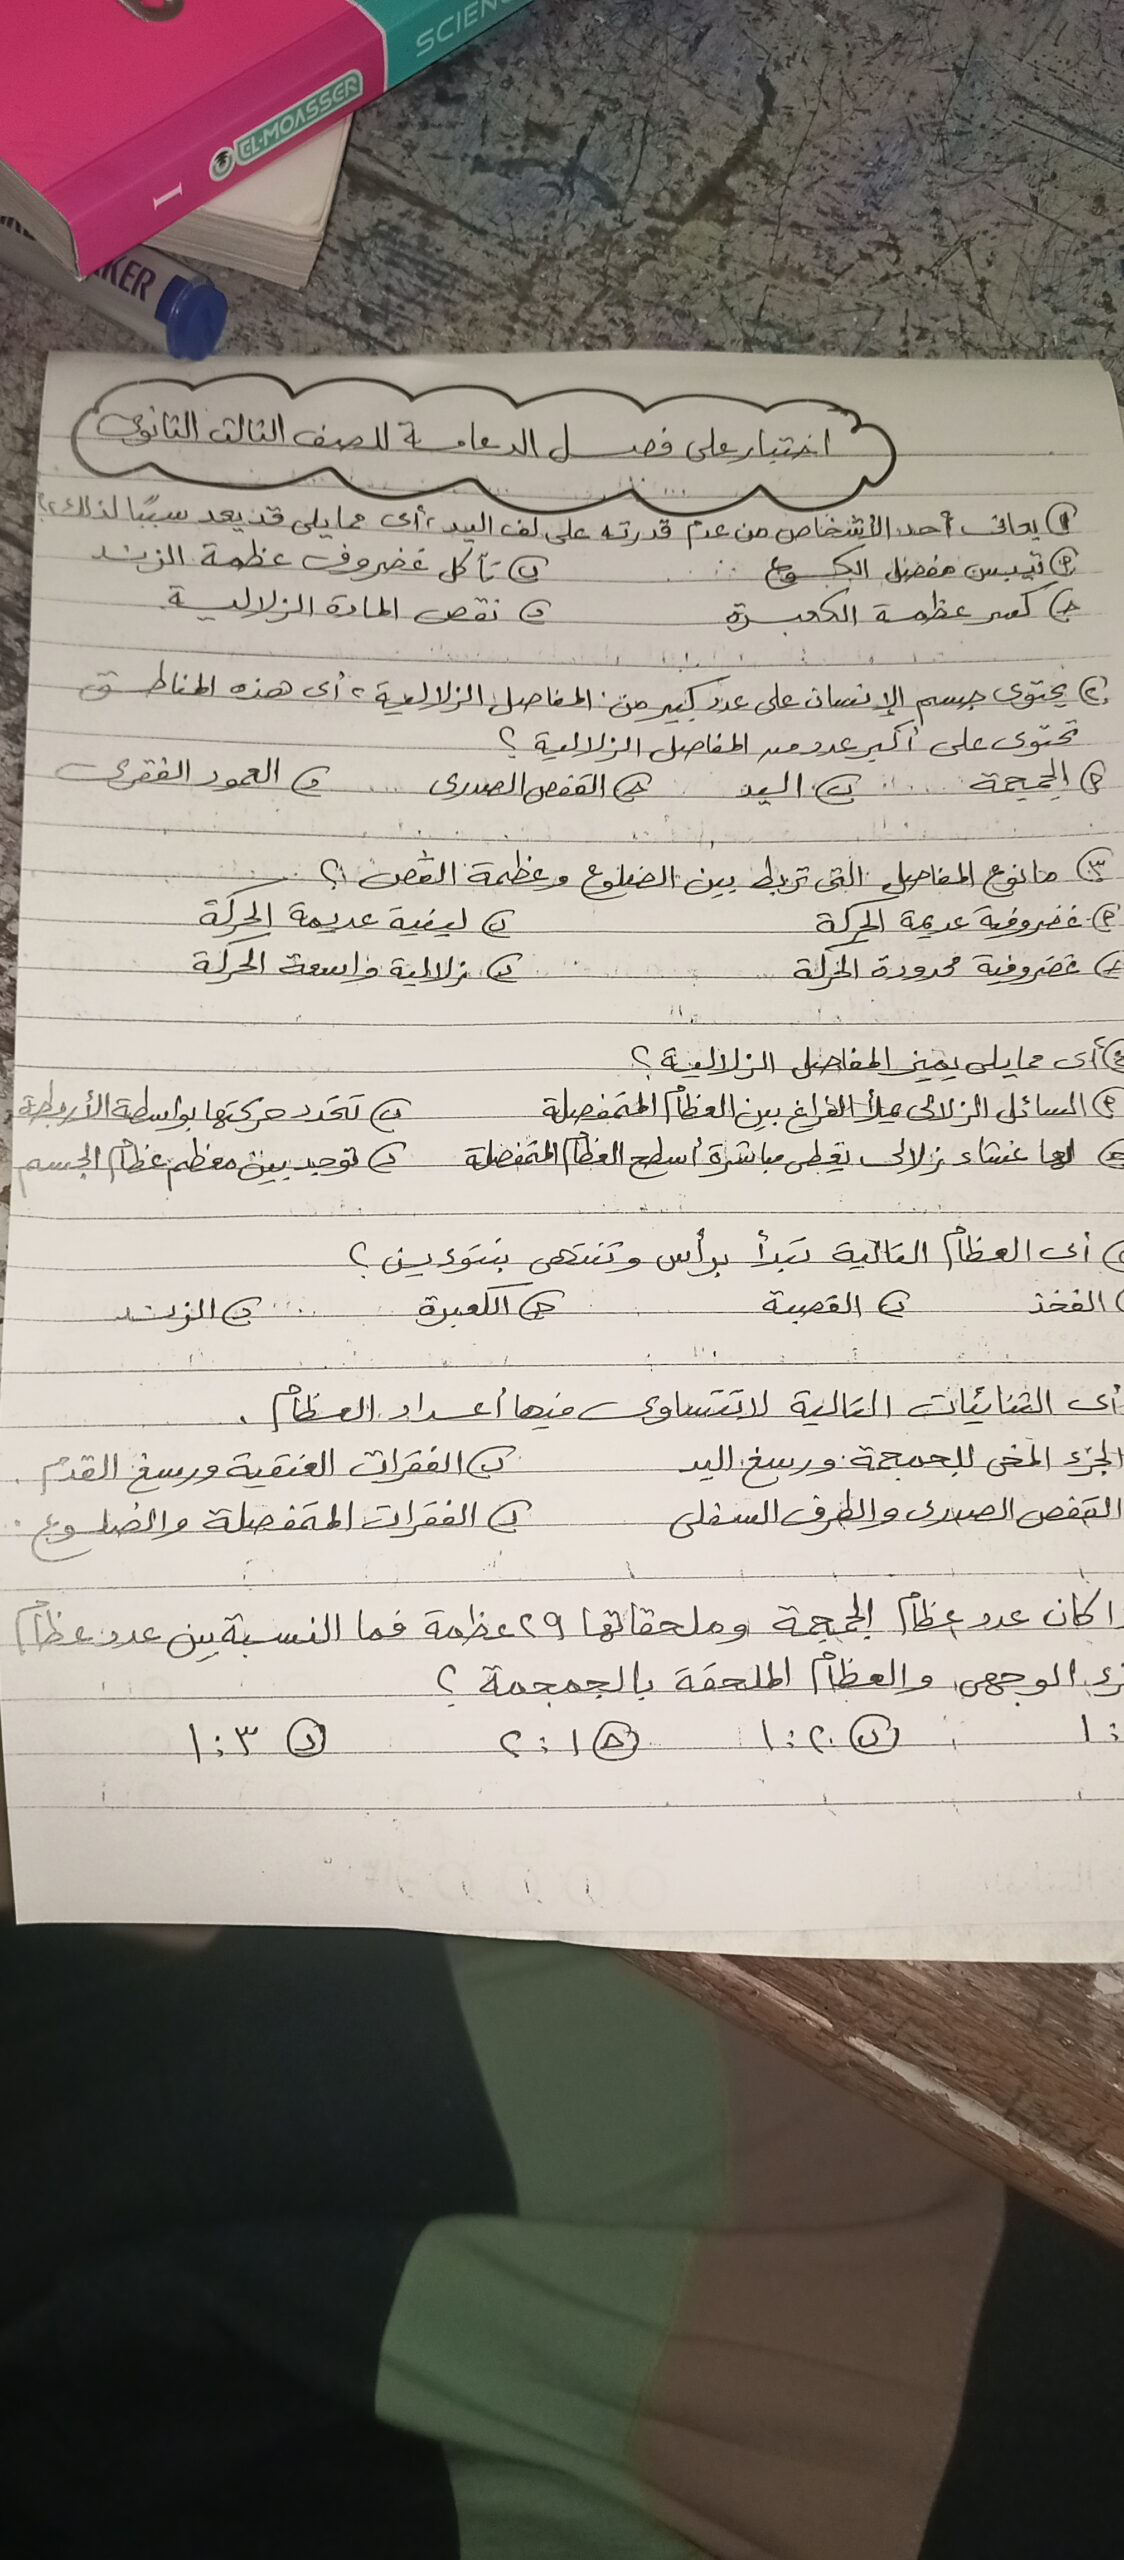 SCIENC
EL-MOASSER
I
RKER
اختبار على فصل الدعامة للصف الثالث الثانوى
١ يعانى أحد الأشخاص من عدم قدرته على لف اليد، أى مما يلى قد يعد سببًا لذلك؟
أ تيبس مفصل الكوع ب تآكل غضروف عظمة الزند
ج كسر عظمة الكعبرة د نقص المادة الزلالية
٢ يحتوى جسم الإنسان على عدد كبير من المفاصل الزلالية، أى هذه المناطق
تحتوى على أكبر عدد من المفاصل الزلالية؟
أ الجمجمة ب اليد ج القفص الصدرى د العمود الفقرى
٣ ما نوع المفاصل التى تربط بين الضلوع وعظمة القص؟
أ غضروفية عديمة الحركة ب ليفية عديمة الحركة
ج غضروفية محدودة الحركة د زلالية واسعة الحركة
٤ أى مما يلى يميز المفاصل الزلالية؟
أ السائل الزلالى يملأ الفراغ بين العظام المتمفصلة ب تتحدد حركتها بواسطة الأربطة
ج لها غشاء زلالى يغطى مباشرة أسطح العظام المتمفصلة د توجد بين معظم عظام الجسم
أى العظام التالية تبدأ برأس وتنتهى بنتوءين؟
الفخذ ب القصبة ج الكعبرة د الزند
أى الثنائيات التالية لا تتساوى فيها أعداد العظام.
الجزء المخى للجمجمة ورسغ اليد ب الفقرات العنقية ورسغ القدم.
القفص الصدرى والطرف السفلى د الفقرات المتمفصلة والضلوع.
ا كان عدد عظام الجمجمة وملحقاتها ٢٩ عظمة فما النسبة بين عدد عظام
زء الوجهى والعظام الملحقة بالجمجمة؟
١ : ب ٢ : ١ ج ١ : ٢ د ٣ : ١